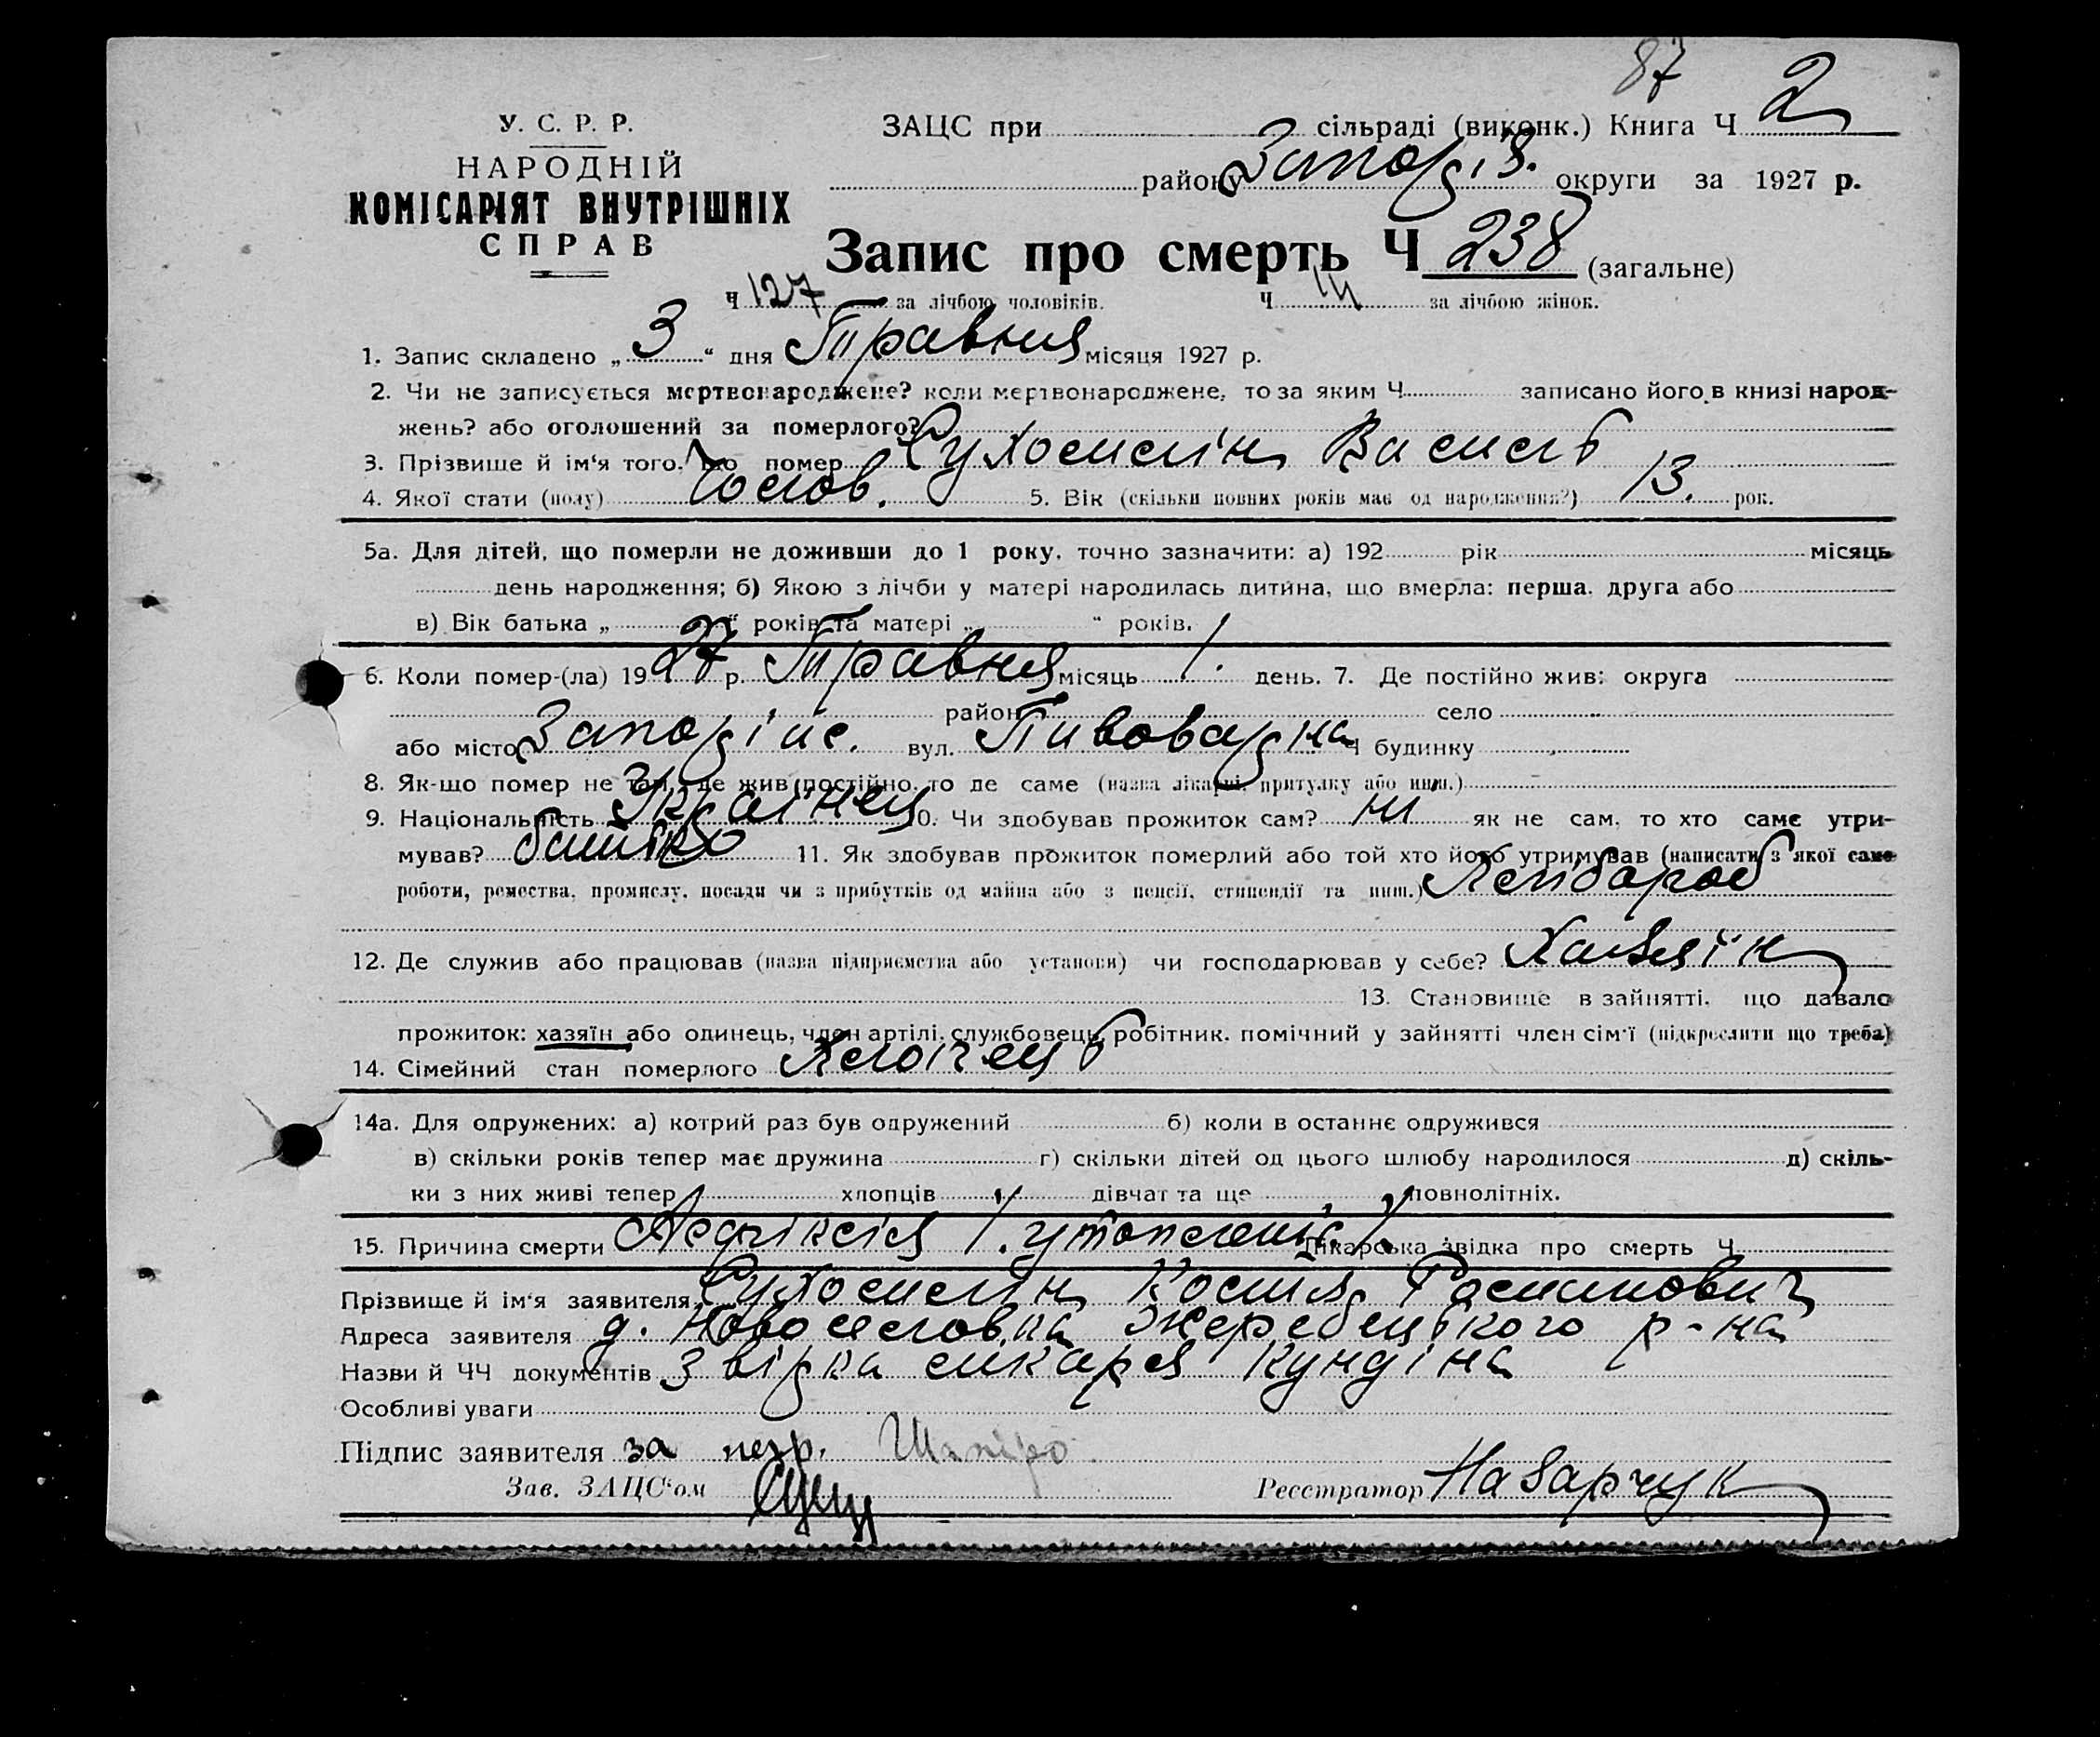 87
У. С. Р. Р.
НАРОДНІЙ
КОМІСАРІЯТ ВНУТРІШНІХ
СПРАВ
ЗАЦС при сільраді (виконк.) Книга Ч 2
району Запоріз. округи за 1927 р.
Запис про смерть Ч 238 (загальне)
Ч 127 за лічбою чоловіків. Ч 111 за лічбою жінок.
1. Запис складено „ 3 “ дня Травня місяця 1927 р.
2. Чи не записується мертвонароджене? коли мертвонароджене, то за яким Ч записано його в книзі народ-
жень? або оголошений за померлого?
3. Прізвище й ім‘я того, що помер Сухосилін Василь
4. Якої стати (полу) Чолов. 5. Вік (скільки повних років має од народження?) 13. рок.
5а. Для дітей, що померли не доживши до 1 року, точно зазначити: а) 192 рік місяць
день народження; б) Якою з лічби у матері народилась дитина, що вмерла: перша, друга або
в) Вік батька „ “ років та матері „ “ років.
6. Коли помер-(ла) 1927 р. Травня місяць 1. день. 7. Де постійно жив: округа
район село
або місто Запоріже. вул. Пивоварна Ч будинку
8. Як-що помер не там, де жив постійно, то де саме (назва лікарні, притулку або инш.)
9. Національність Українец 10. Чи здобував прожиток сам? ні як не сам, то хто саме утри-
мував? батько 11. Як здобував прожиток померлий або той хто його утримував (написати з якої саме
роботи, ремества, промислу, посади чи з прибутків од майна або з пенсії, стипендії та инш.) Хлібороб
12. Де служив або працював (назва підприємства або установи) чи господарював у себе? Хазяїн
13. Становище в зайнятті, що давало
прожиток: хазяїн або одинець, член артілі, службовець, робітник, помічний у зайнятті член сім‘ї (підкреслити що треба)
14. Сімейний стан померлого Хлопець
14а. Для одружених: а) котрий раз був одружений б) коли в останнє одружився
в) скільки років тепер має дружина г) скільки дітей од цього шлюбу народилося д) скіль-
ки з них живі тепер хлопців дівчат та ще повнолітніх.
15. Причина смерти Асфіксія /утопленіє/. Лікарська звідка про смерть Ч
Прізвище й ім‘я заявителя Сухосилін Костя
Адреса заявителя д. Новоселовка Жеребецького р-на
Назви й ЧЧ документів Звірка лікаря Кундіна
Особливі уваги
Підпис заявителя за негр. Шапіро
Зав. ЗАЦС‘ом Реєстратор Назарчук